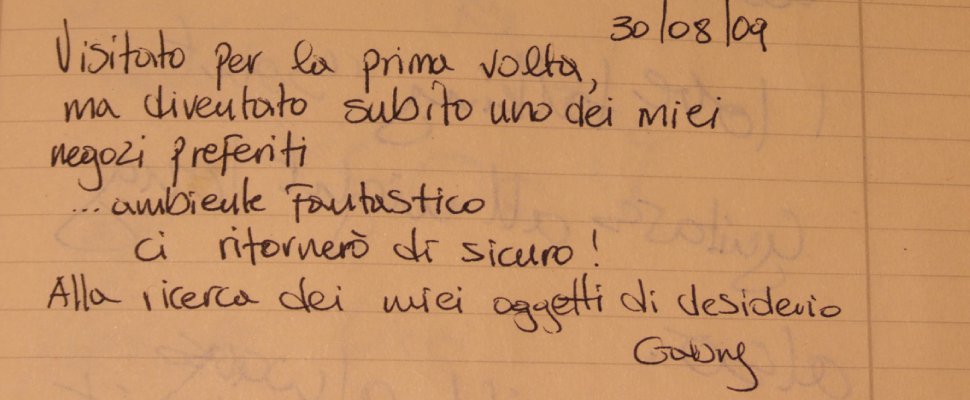 30/08/09
Visitato per la prima volta,
ma diventato subito uno dei miei
negozi preferiti
...ambiente Fantastico
ci ritornerò di sicuro!
Alla ricerca dei miei oggetti di desiderio